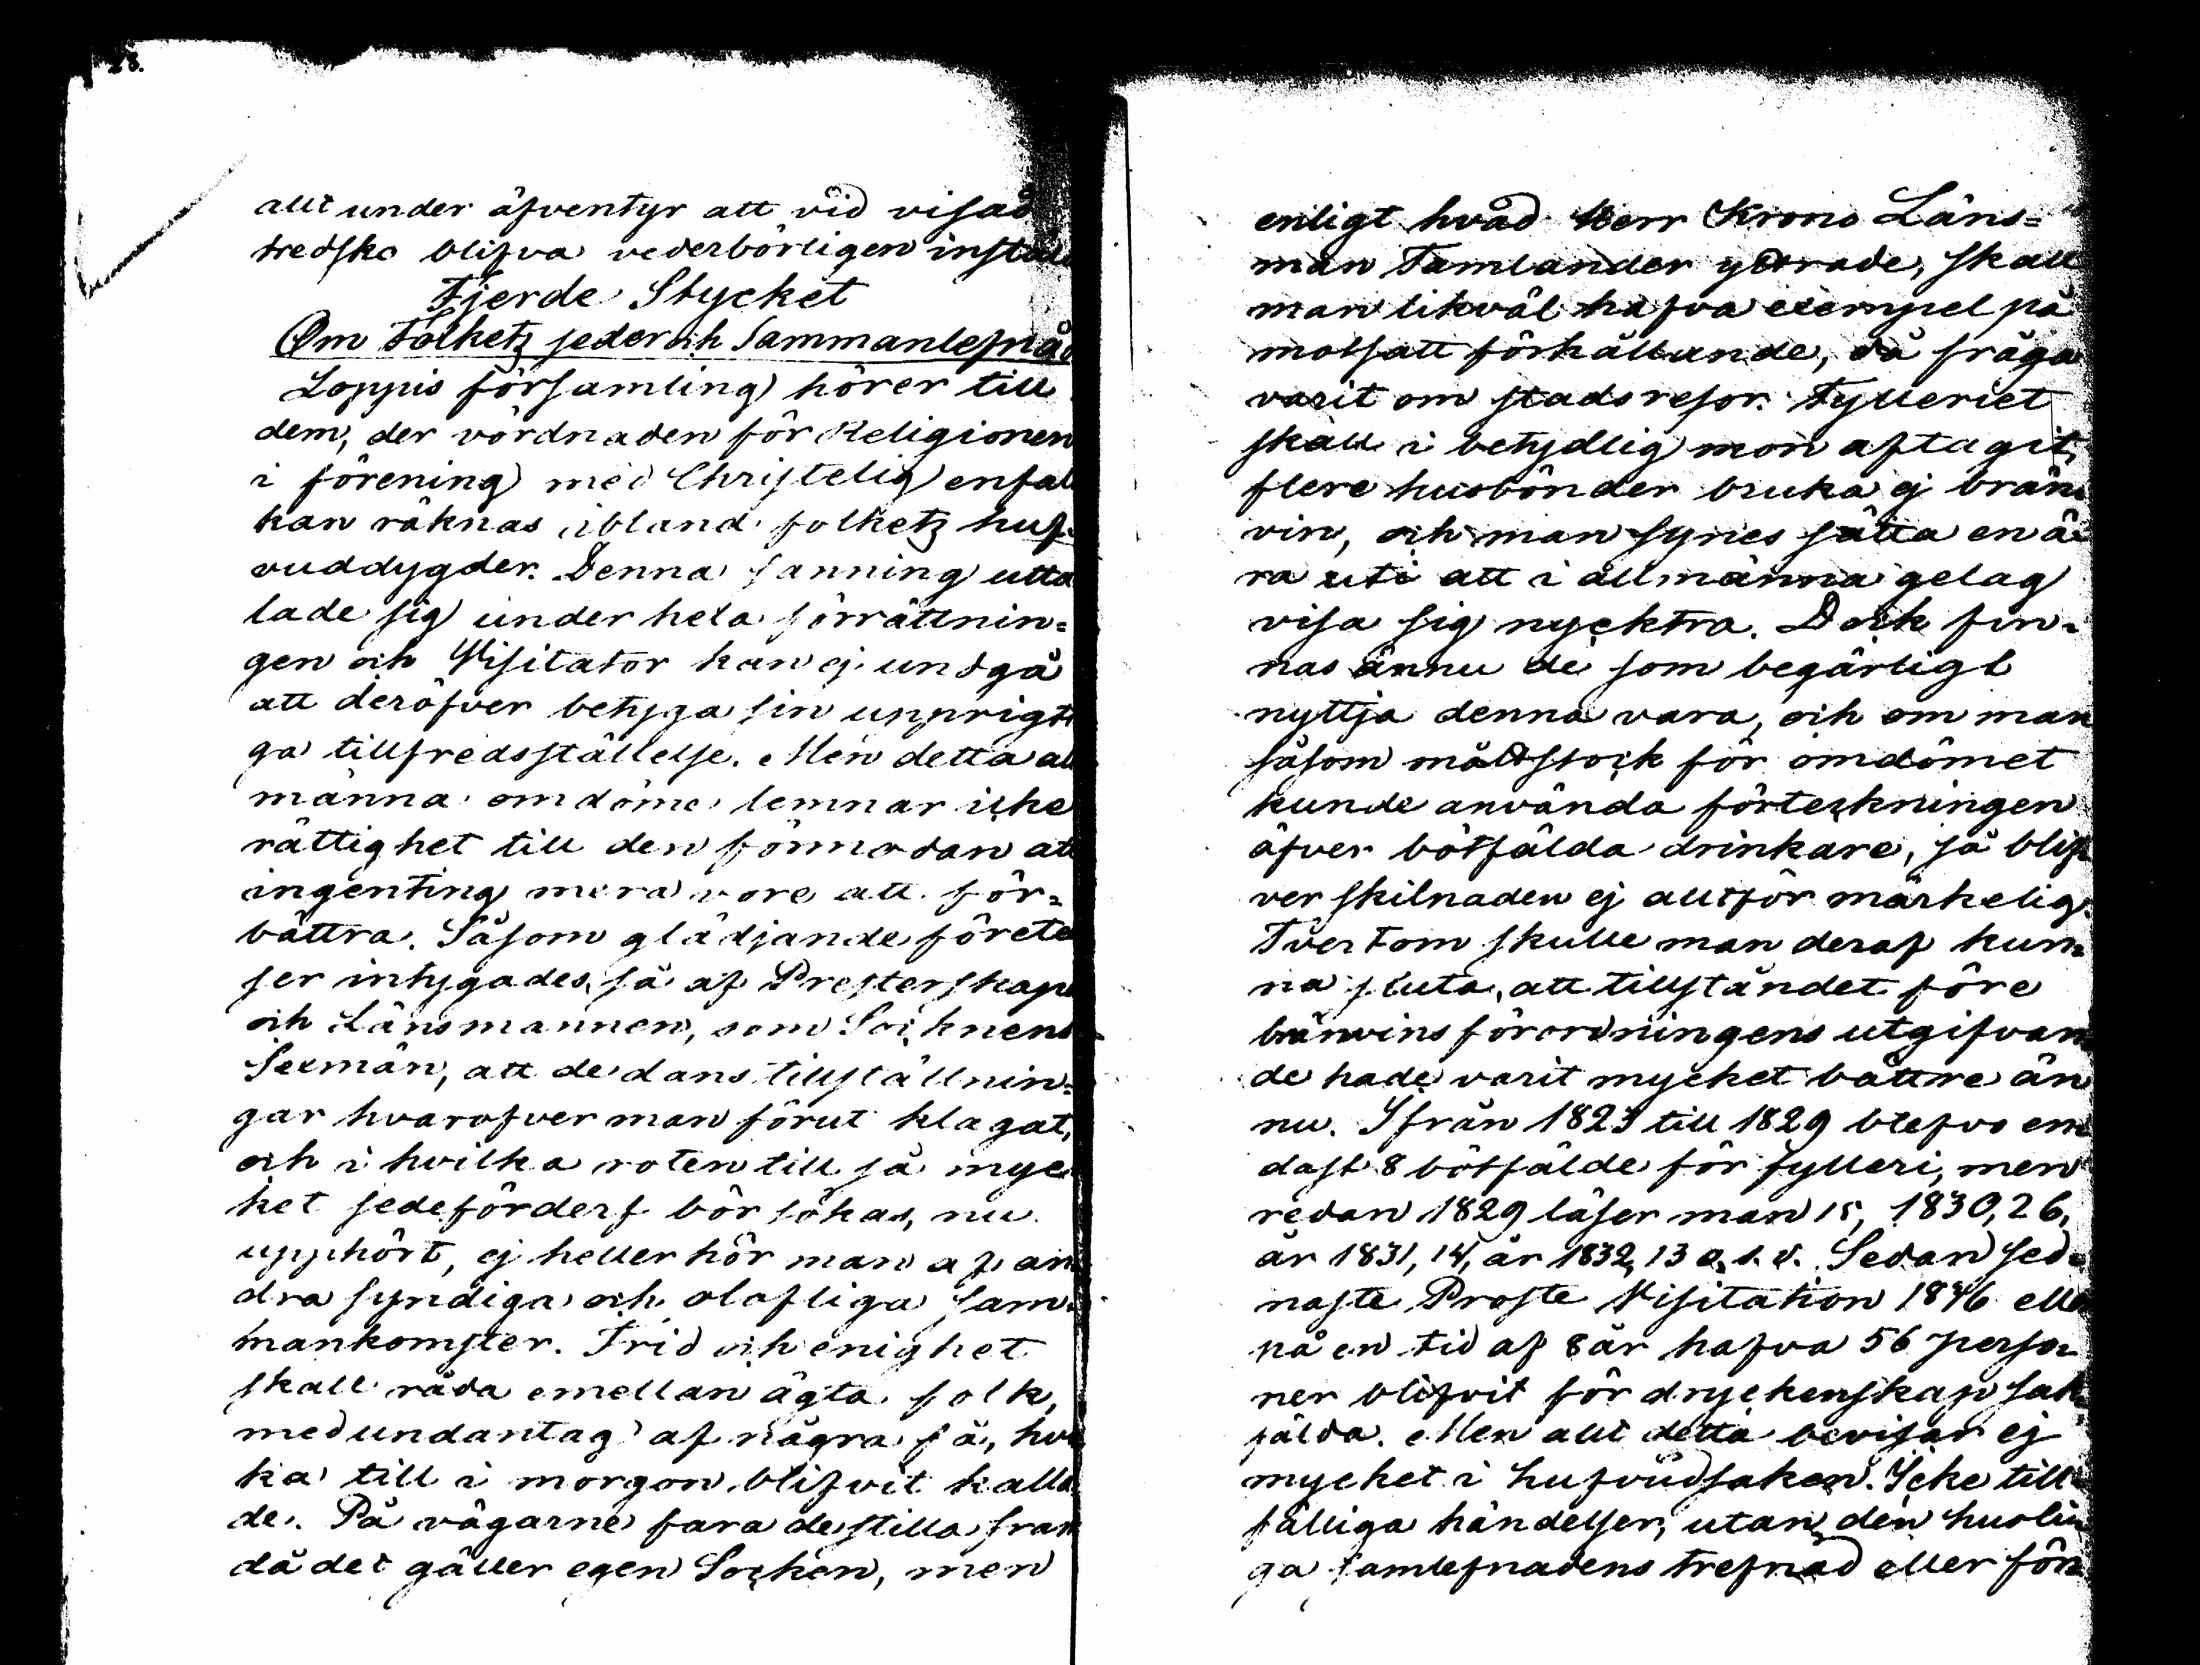 28.
allt under äfventyr att vid visad
tredska blifva vederbörligen instäld
Fjerde Stycket
Om Folketz seder och Sammanlefnad
Loppis församling hörer till
dem, der vördnaden för Religionen
i förening med Christelig enfal
kan räknas ibland folketz huf-
vuddygder. Denna sanning utta
lade sig under hela förrättnin-
gen och Visitator kan ej undgå
att deröfver betyga sin upprigti
ga tillfredsställelse. Men detta all
männa omdöme lemnar icke
rättighet till den förmodan att
ingenting mera vore att för-
bättra. Såsom glädjande förete
ser intygades, så af Presterskapet
och Länsmannen, som Socknens
Sexmän, att de danstillställnin-
gar hvarofver man förut klagat,
och i hvilka roten till så myc
ket sedeförderf bör sökas, nu
upphört, ej heller hör man af an
dra syndiga och olofliga sam-
mankomster. Frid och enighet
skall råda emellan ägta folk,
med undantag af några få, hvil
ka till i morgon blifvit kalla
de. På vägarne fara de stilla fram
då det gäller egen Socken, men
enligt hvad Herr Krono Läns-
man Tamlander yttrade, skall
man likväl hafva exempel på
motsatt förhållande, då fråga
varit om stadsresor. Fylleriet
skall i betydlig mon aftagit,
flere husbönder bruka ej brän-
vin, och man synes sätta en ä-
ra uti att i allmänna gelag
visa sig nycktra. Dock fin-
nas ännu de som begärligt
nyttja denna vara, och om man
såsom måttstock för omdömet
kunde använda förteckningen
öfver bötfälda drinkare, så blif-
ver skilnaden ej alltför märkelig.
Tvertom skulle man deraf kun-
na sluta, att tillståndet före
bränvins förordningens utgifvan
de hade varit mycket bättre än
nu. Ifrån 1823 till 1829 blefvo en-
dast 8 bötfälde för fylleri, men
redan 1829 läser man 15, 1830, 26,
år 1831, 14, år 1832, 13 o. s. v. Sedan sed-
naste Proste Visitation 1846 elle
på en tid af 8 år hafva 56 perso-
ner blifvit för dryckenskap sak-
fälda. Men allt detta bevisar ej
mycket i hufvudsaken. Icke till-
fälliga händelser, utan den husli-
ga samlefnadens trefnad eller för-